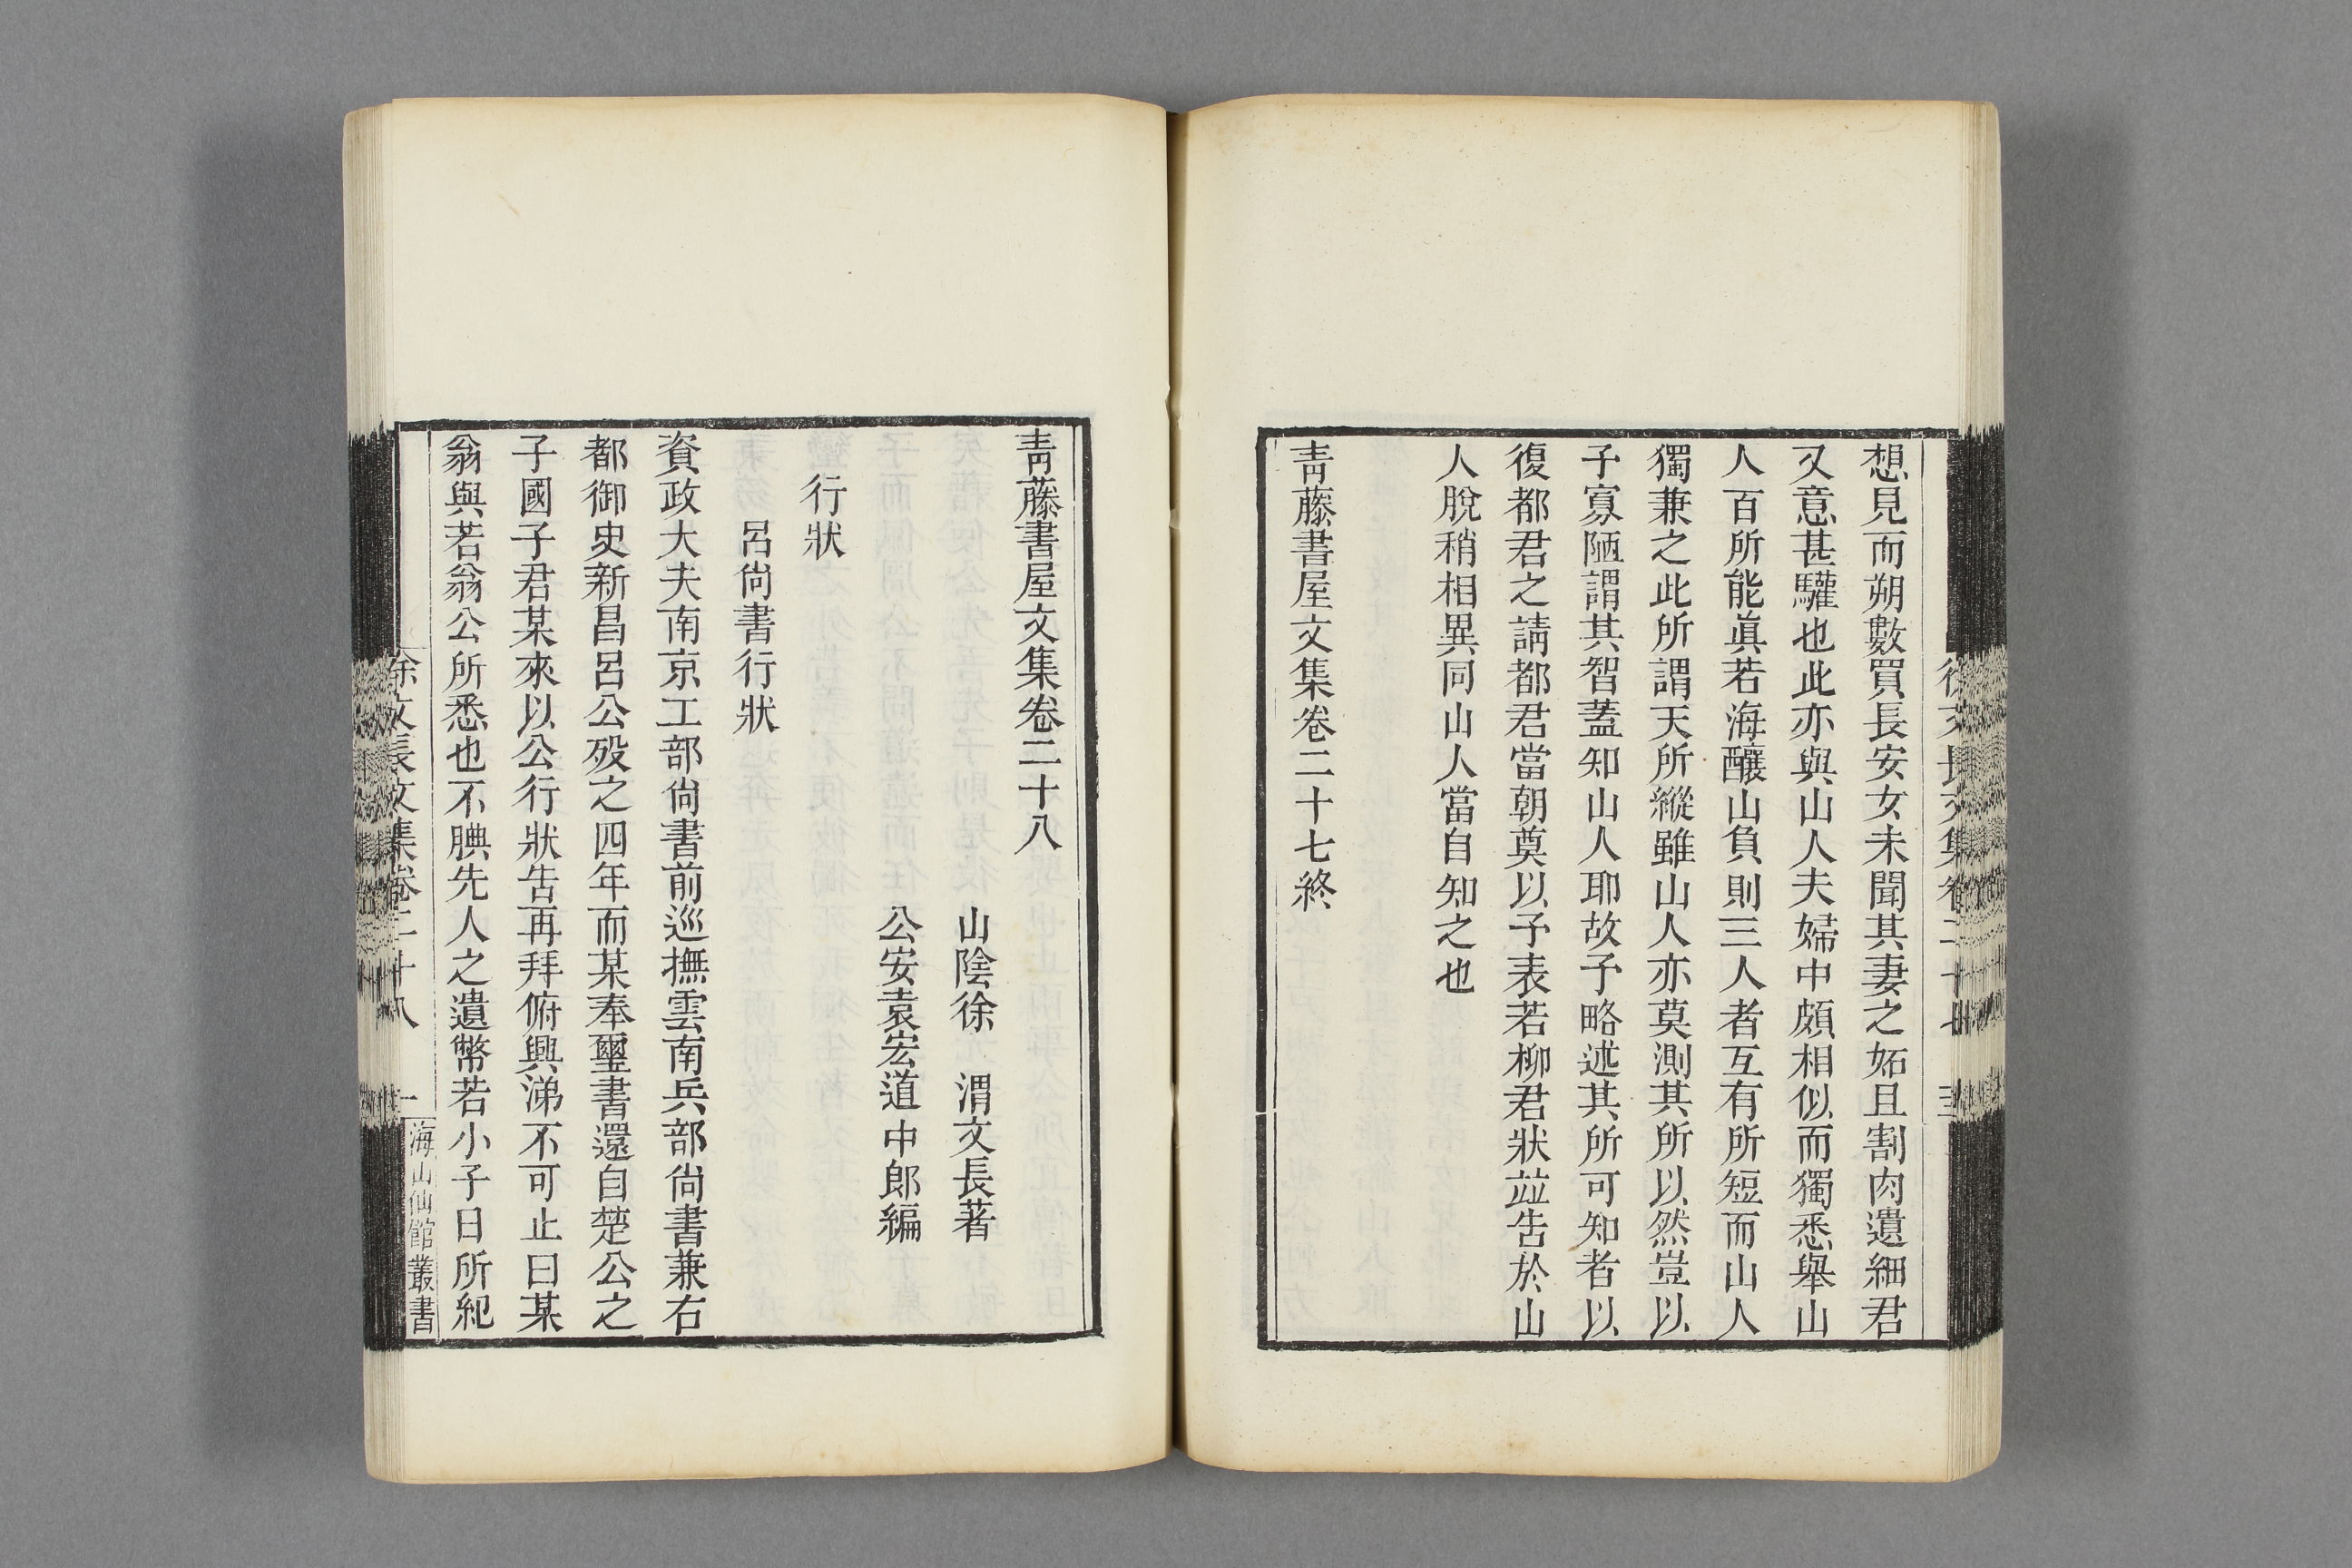 想見而朔數買長安女未聞其妻之妬且割肉遺細君
又意甚驩也此亦與山人夫婦中頗相似而獨悉舉山
人百所能眞若海釀山負則三人者互有所短而山人
獨兼之此所謂天所縱雖山人亦莫測其所以然豈以
子寡陋謂其智蓋知山人耶故予略述其所可知者以
復都君之請都君當朝奠以予表若柳君狀並告於山
人脫稍相異同山人當自知之也
青藤書屋文集卷二十七終
青藤書屋文集卷二十八
山陰徐　渭文長著
公安袁宏道中郎編
行狀
呂尚書行狀
資政大夫南京工部尚書前巡撫雲南兵部尚書兼右
都御史新昌呂公歿之四年而某奉璽書還自楚公之
子國子君某來以公行狀告再拜俯興涕不可止曰某
翁與若翁公所悉也不腆先人之遺幣若小子日所紀
徐文長文集卷二十八　一
海山仙館叢書